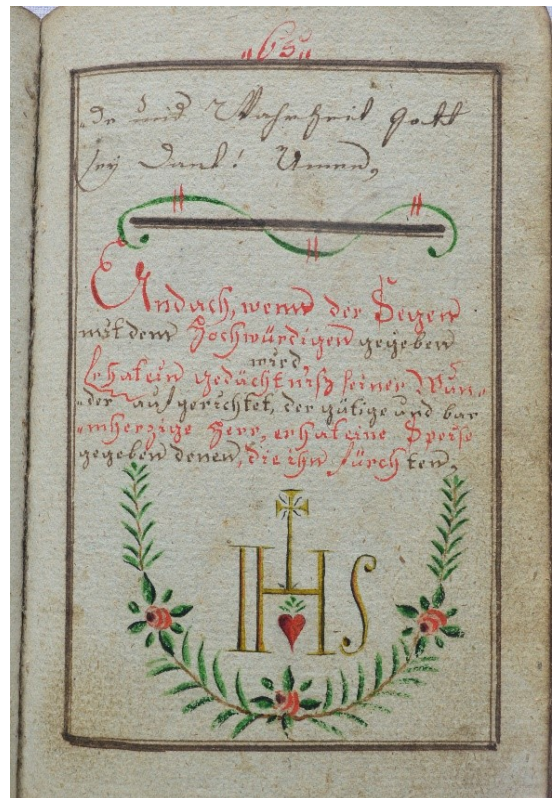 „65„
„de und Wahrheit gott
sey Dank! Amen,
Andach, wenn der Segen
mit dem Hochwürdigen gegeben
wird,
Er hat ein gedächtnisß seiner Wun„
„der aufgerichtet, der gütige und bar
„mherzige Herr, er hat eine Speise
gegeben denen, die ihn fürchten,
IHS